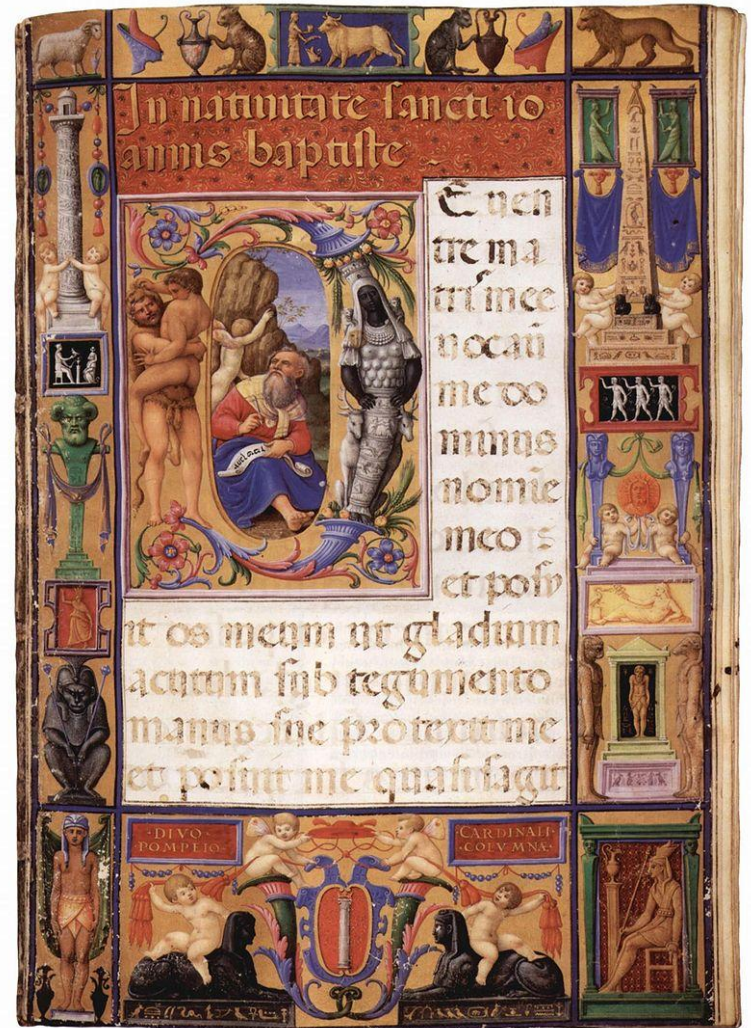 In natiuitate sancti io
annis baptiste
D E uen
tre ma
tris mee
uocauit
me do
minus
nomīe
meo :
et posu
it os meum ut gladium
acutum sub tegumento
manus sue protexit me
et posuit me quasi sagit
·DIVO·
POMPEIO·
CARDINALI·
·COLVMNÆ·